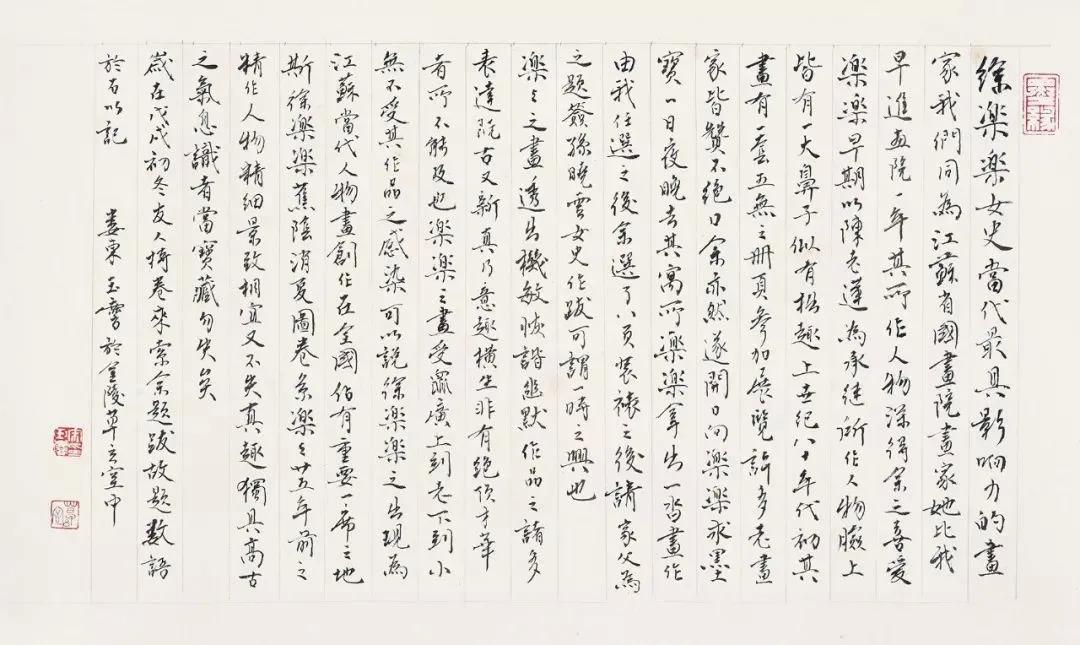 徐樂樂女史當代最具影响力的畫
家我們同為江蘇省國畫院畫家她比我
早進画院一年其所作人物深得余之喜愛
樂樂早期以陳老蓮為承继所作人物臉上
皆有一大鼻子似有拙趣上世纪八十年代初其
畫有一套五無之册頁參加展覽許多老畫
家皆贊不绝口余亦然遂開口向樂樂求墨
寶一日夜晚去其寓所樂樂拿出一沓畫作
由我任選之後余選了八頁裝裱之後請家父為
之題簽孫曉雲女史作跋可謂一時之興也
樂々之畫透出機敏詼諧幽默作品之諸多
表達既古又新真乃意趣横生非有绝頂才華
者所不能及也樂樂之畫受衆廣上到老下到小
無不受其作品之感染可以説徐樂樂之出現為
江蘇當代人物畫創作在全國佔有重要一席之地
斯徐樂樂蕉陰消夏圖卷系樂々廿五年前之
精作人物精细景致相宜又不失真趣獨具高古
之氣息識者當寶藏勿失矣
歲在戊戌初冬友人携卷來索余題跋故題数語
於右以記 婁東 於金陵草玄室中